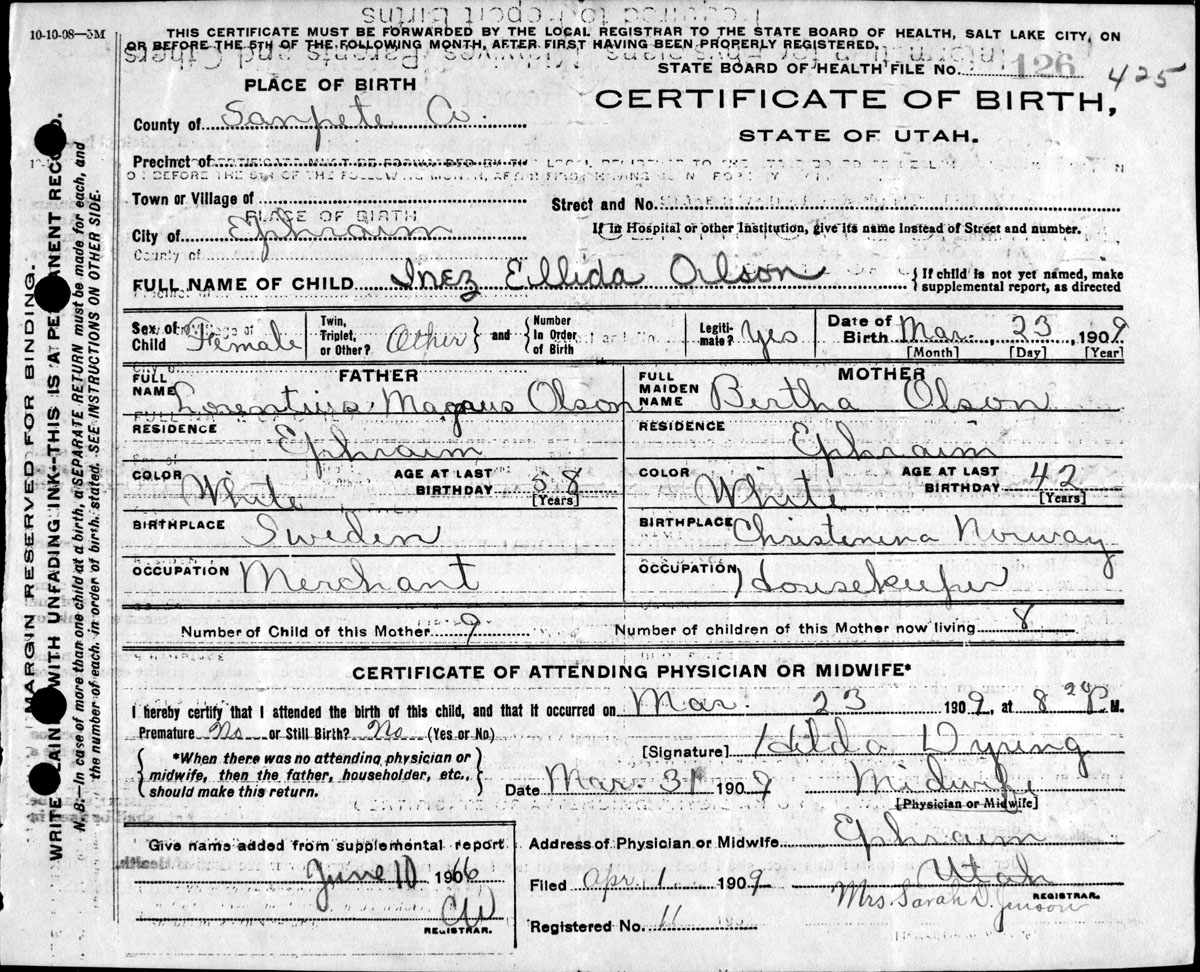 10-10-08—5M
THIS CERTIFICATE MUST BE FORWARDED BY THE LOCAL REGISTRAR TO THE STATE BOARD OF HEALTH, SALT LAKE CITY, ON
OR BEFORE THE 5TH OF THE FOLLOWING MONTH, AFTER FIRST HAVING BEEN PROPERLY REGISTERED.
STATE BOARD OF HEALTH FILE No. 126 425
PLACE OF BIRTH
CERTIFICATE OF BIRTH,
STATE OF UTAH.
County of Sanpete Co.
Precinct of
Town or Village of
Street and No.
PLACE OF BIRTH
City of Ephraim
If in Hospital or other Institution, give its name instead of Street and number.
County of
FULL NAME OF CHILD Inez Ellida Olson { If child is not yet named, make supplemental report, as directed
Sex of Child Female Twin, Triplet, or Other? Other and Number In Order of Birth Legiti-mate? Yes Date of Birth Mar. 23, 1909
[Month] [Day] [Year]
FATHER MOTHER
FULL NAME Lorentius Magnus Olson FULL MAIDEN NAME Bertha Olson
RESIDENCE Ephraim RESIDENCE Ephraim
COLOR White AGE AT LAST BIRTHDAY 58 [Years] COLOR White AGE AT LAST BIRTHDAY 42 [Years]
BIRTHPLACE Sweden BIRTHPLACE Christenina Norway
OCCUPATION Merchant OCCUPATION Housekeeper
Number of Child of this Mother 9 Number of children of this Mother now living 8
CERTIFICATE OF ATTENDING PHYSICIAN OR MIDWIFE*
I hereby certify that I attended the birth of this child, and that it occurred on Mar. 23 1909, at 8 P. M.
Premature No or Still Birth? No (Yes or No)
[Signature] Hilda Dyring
*When there was no attending physician or
midwife, then the father, householder, etc.,
should make this return.
Date Mar. 31 1909 Midwife
[Physician or Midwife]
Give name added from supplemental report
June 10 1966
CW
REGISTRAR.
Address of Physician or Midwife Ephraim
Utah
Filed Apr. 1 1909
Mrs. Sarah D. Jenson
REGISTRAR.
Registered No. 11
MARGIN RESERVED FOR BINDING.
WRITE PLAINLY WITH UNFADING INK—THIS IS A PERMANENT RECORD.
N. B.—In case of more than one child at a birth, a SEPARATE RETURN must be made for each, and
the number of each, in order of birth, stated. SEE INSTRUCTIONS ON OTHER SIDE.